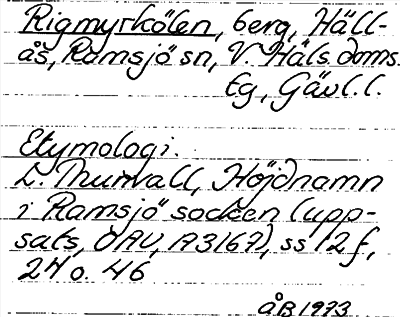 Rigmyrkölen, berg, Häll-
ås, Ramsjö sn, V. Häls. doms.
tg, Gävl. l.
Etymologi.
L. Thunvall, Höjdnamn
i Ramsjö socken (upp-
sats, OAU, A3167), ss 12 f,
24 o. 46
ÅB 1973